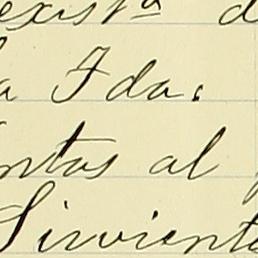 exist.ª d
a Fda.
ntas al
Sirvient